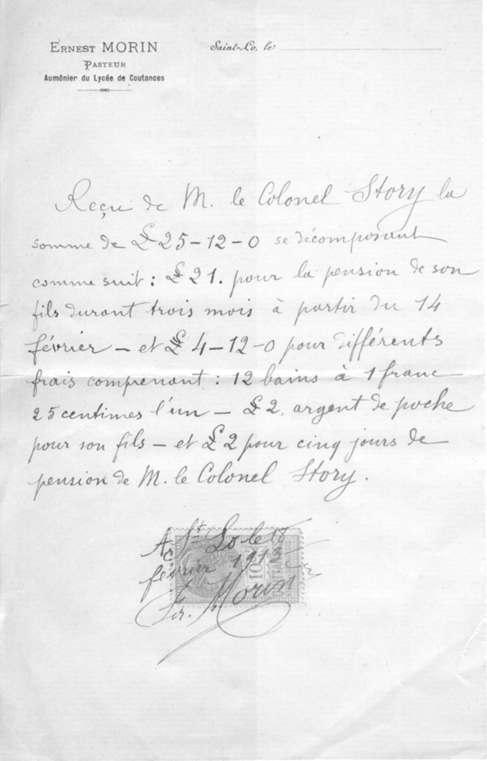 ERNEST MORIN
PASTEUR
Aumônier du Lycée de Coutances
Saint-Lo, le
Reçu de M. le Colonel Story la
somme de £25-12-0 se décomposant
comme suit : £21. pour la pension de son
fils durant trois mois à partir du 14
février - et £4-12-0 pour différents
frais comprenant : 12 bains à 1 franc
25 centimes l'un - £2. argent de poche
pour son fils - et £2 pour cinq jours de
pension de M. le Colonel Story.
A St Lo le
février 1913
Morin
10